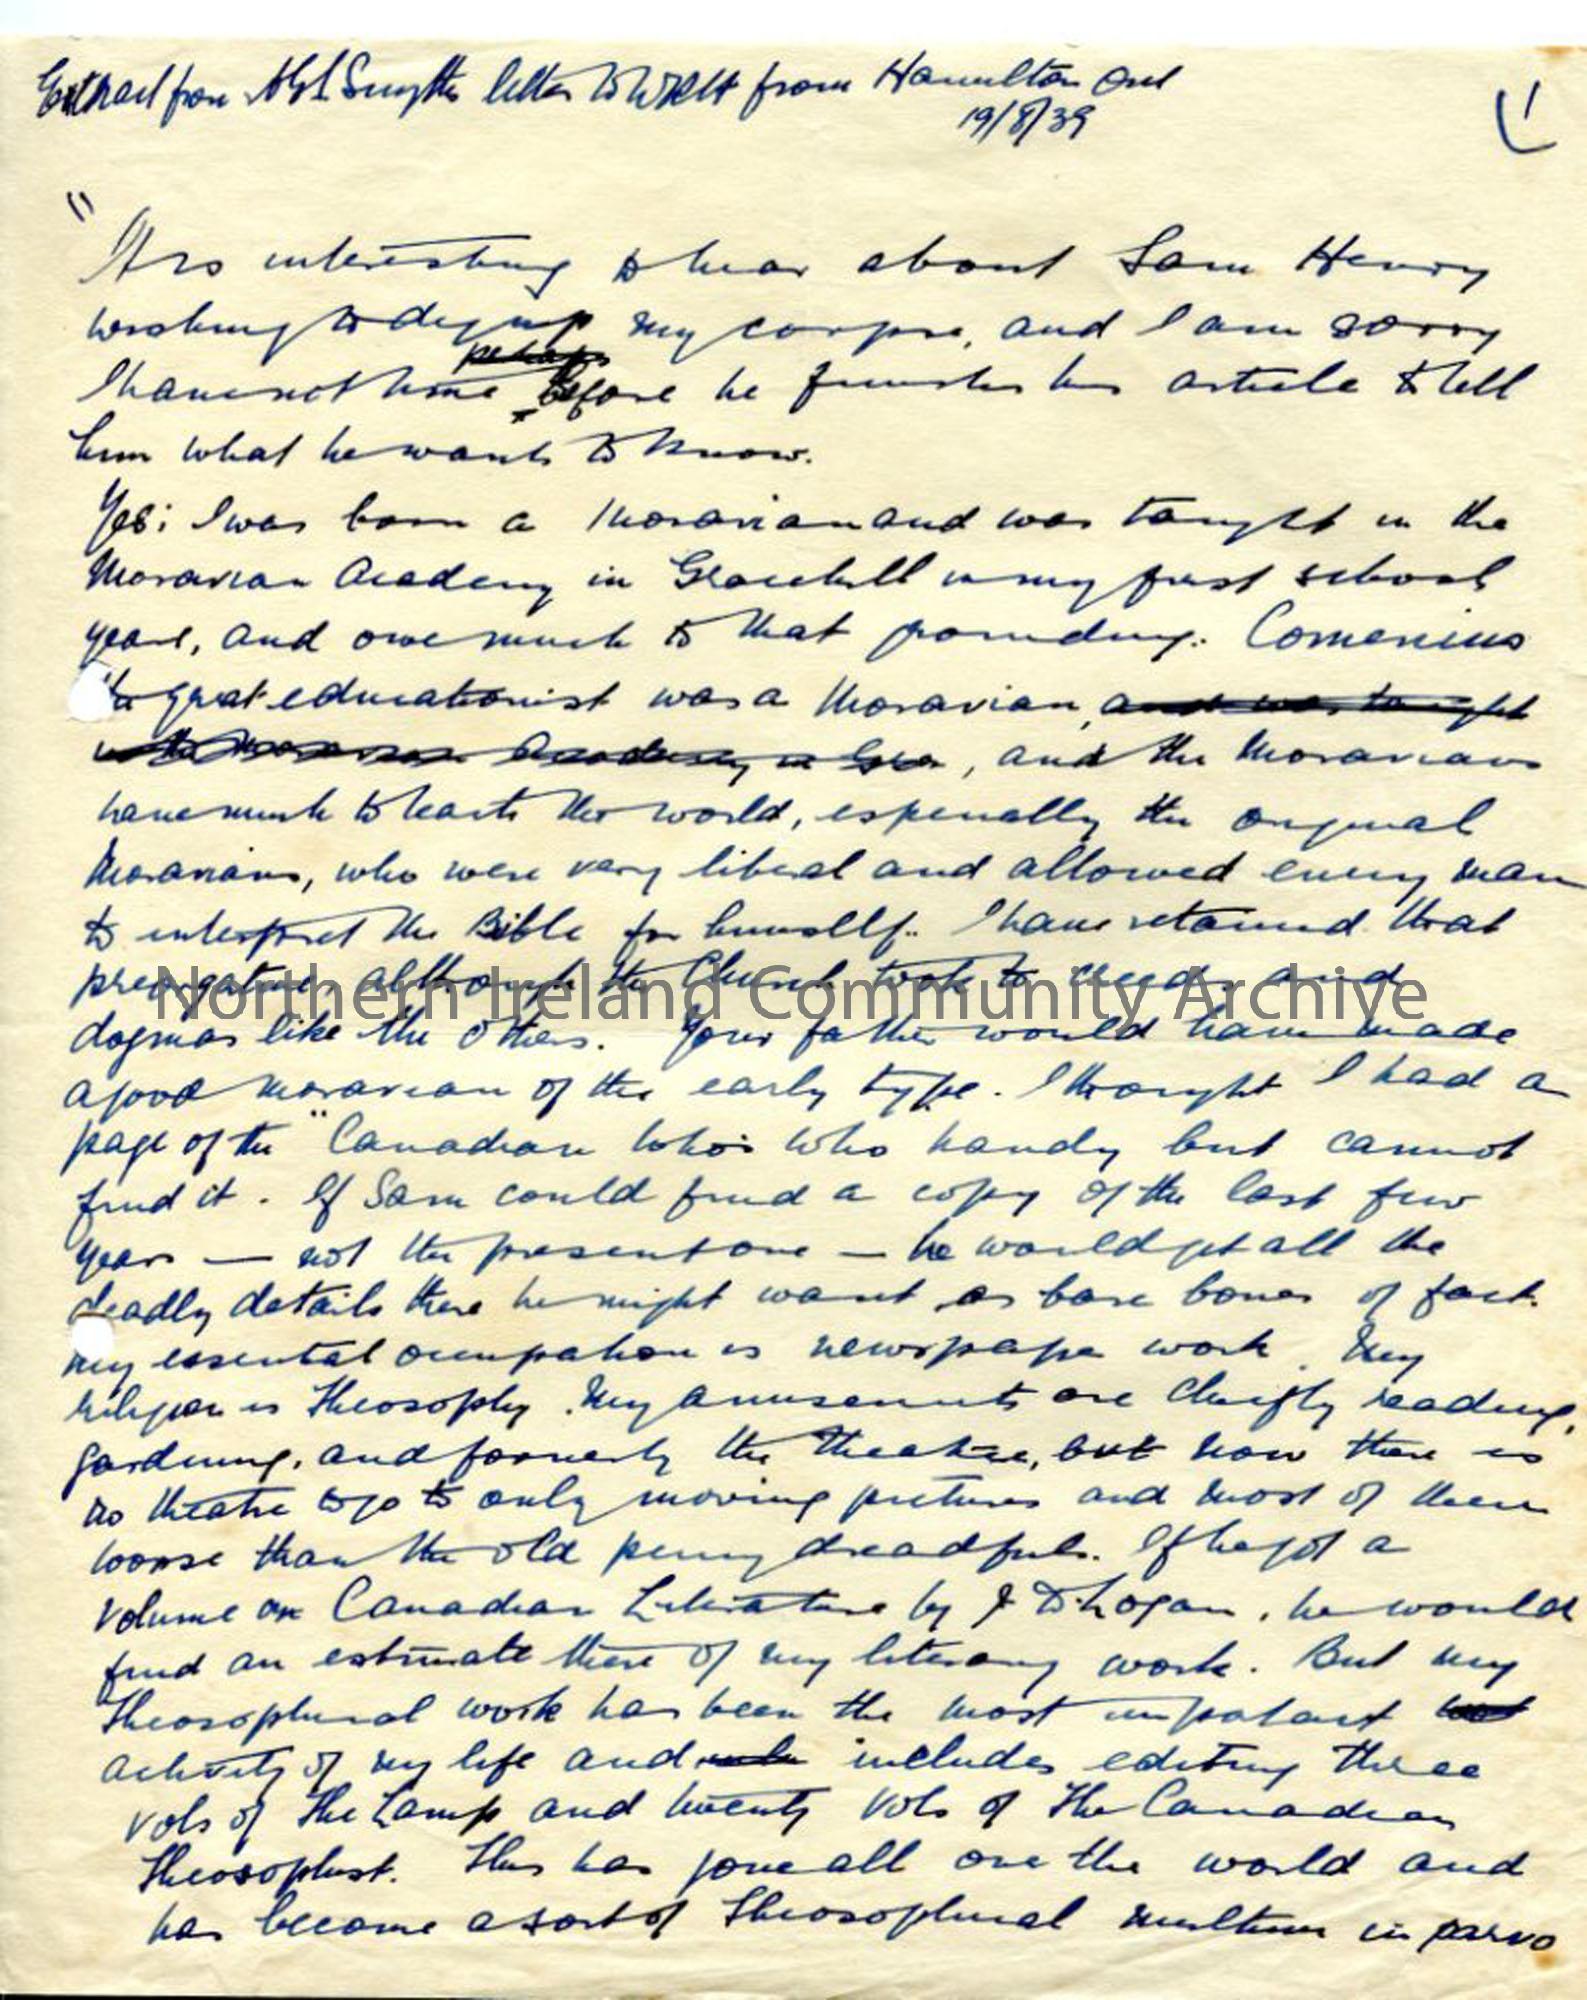 Extract from A E S Smythe letter to WRLH from Hamilton Ont
19/8/39
1
"It is interesting to hear about Sam Henry
working to dig up my corpse, and I am sorry
I have not time perhaps before he finishes his article to tell
him what he wants to know.
Yes; I was born a Moravian and was taught in the
Moravian Academy in Gracehill in my first school
years, and owe much to that grounding. Comenius
the great educationist was a Moravian, and was taught
in the Moravian Academy in Gra, and the Moravians
have much to teach the world, especially the original
Moravians, who were very liberal and allowed every man
to interpret the Bible for himself. I have retained that
prerogative, although the Church took to creeds and
dogmas like the others. Your father would have made
a good Moravian of the early type. I thought I had a
page of the "Canadian Who's Who handy but cannot
find it. If Sam could find a copy of the last few
years — not the present one — he would get all the
deadly details there he might want as bare bones of fact.
My essential occupation is newspaper work. My
religion is Theosophy. My amusements are chiefly reading,
gardening, and formerly the theatre, but now there is
no theatre to go to only moving pictures and most of them
worse than the old penny dreadfuls. If he got a
volume on Canadian Literature by J D Logan, he would
find an estimate there of my literary work. But my
Theosophical work has been the most important
activity of my life and includes editing three
vols of The Lamp and twenty vols of The Canadian
Theosophist. This has gone all over the world and
has become a sort of Theosophical multum in parvo
Northern Ireland Community Archive